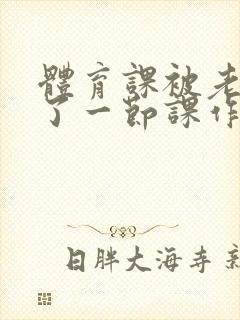 體育課被老
了一節課作
日胖大海寺